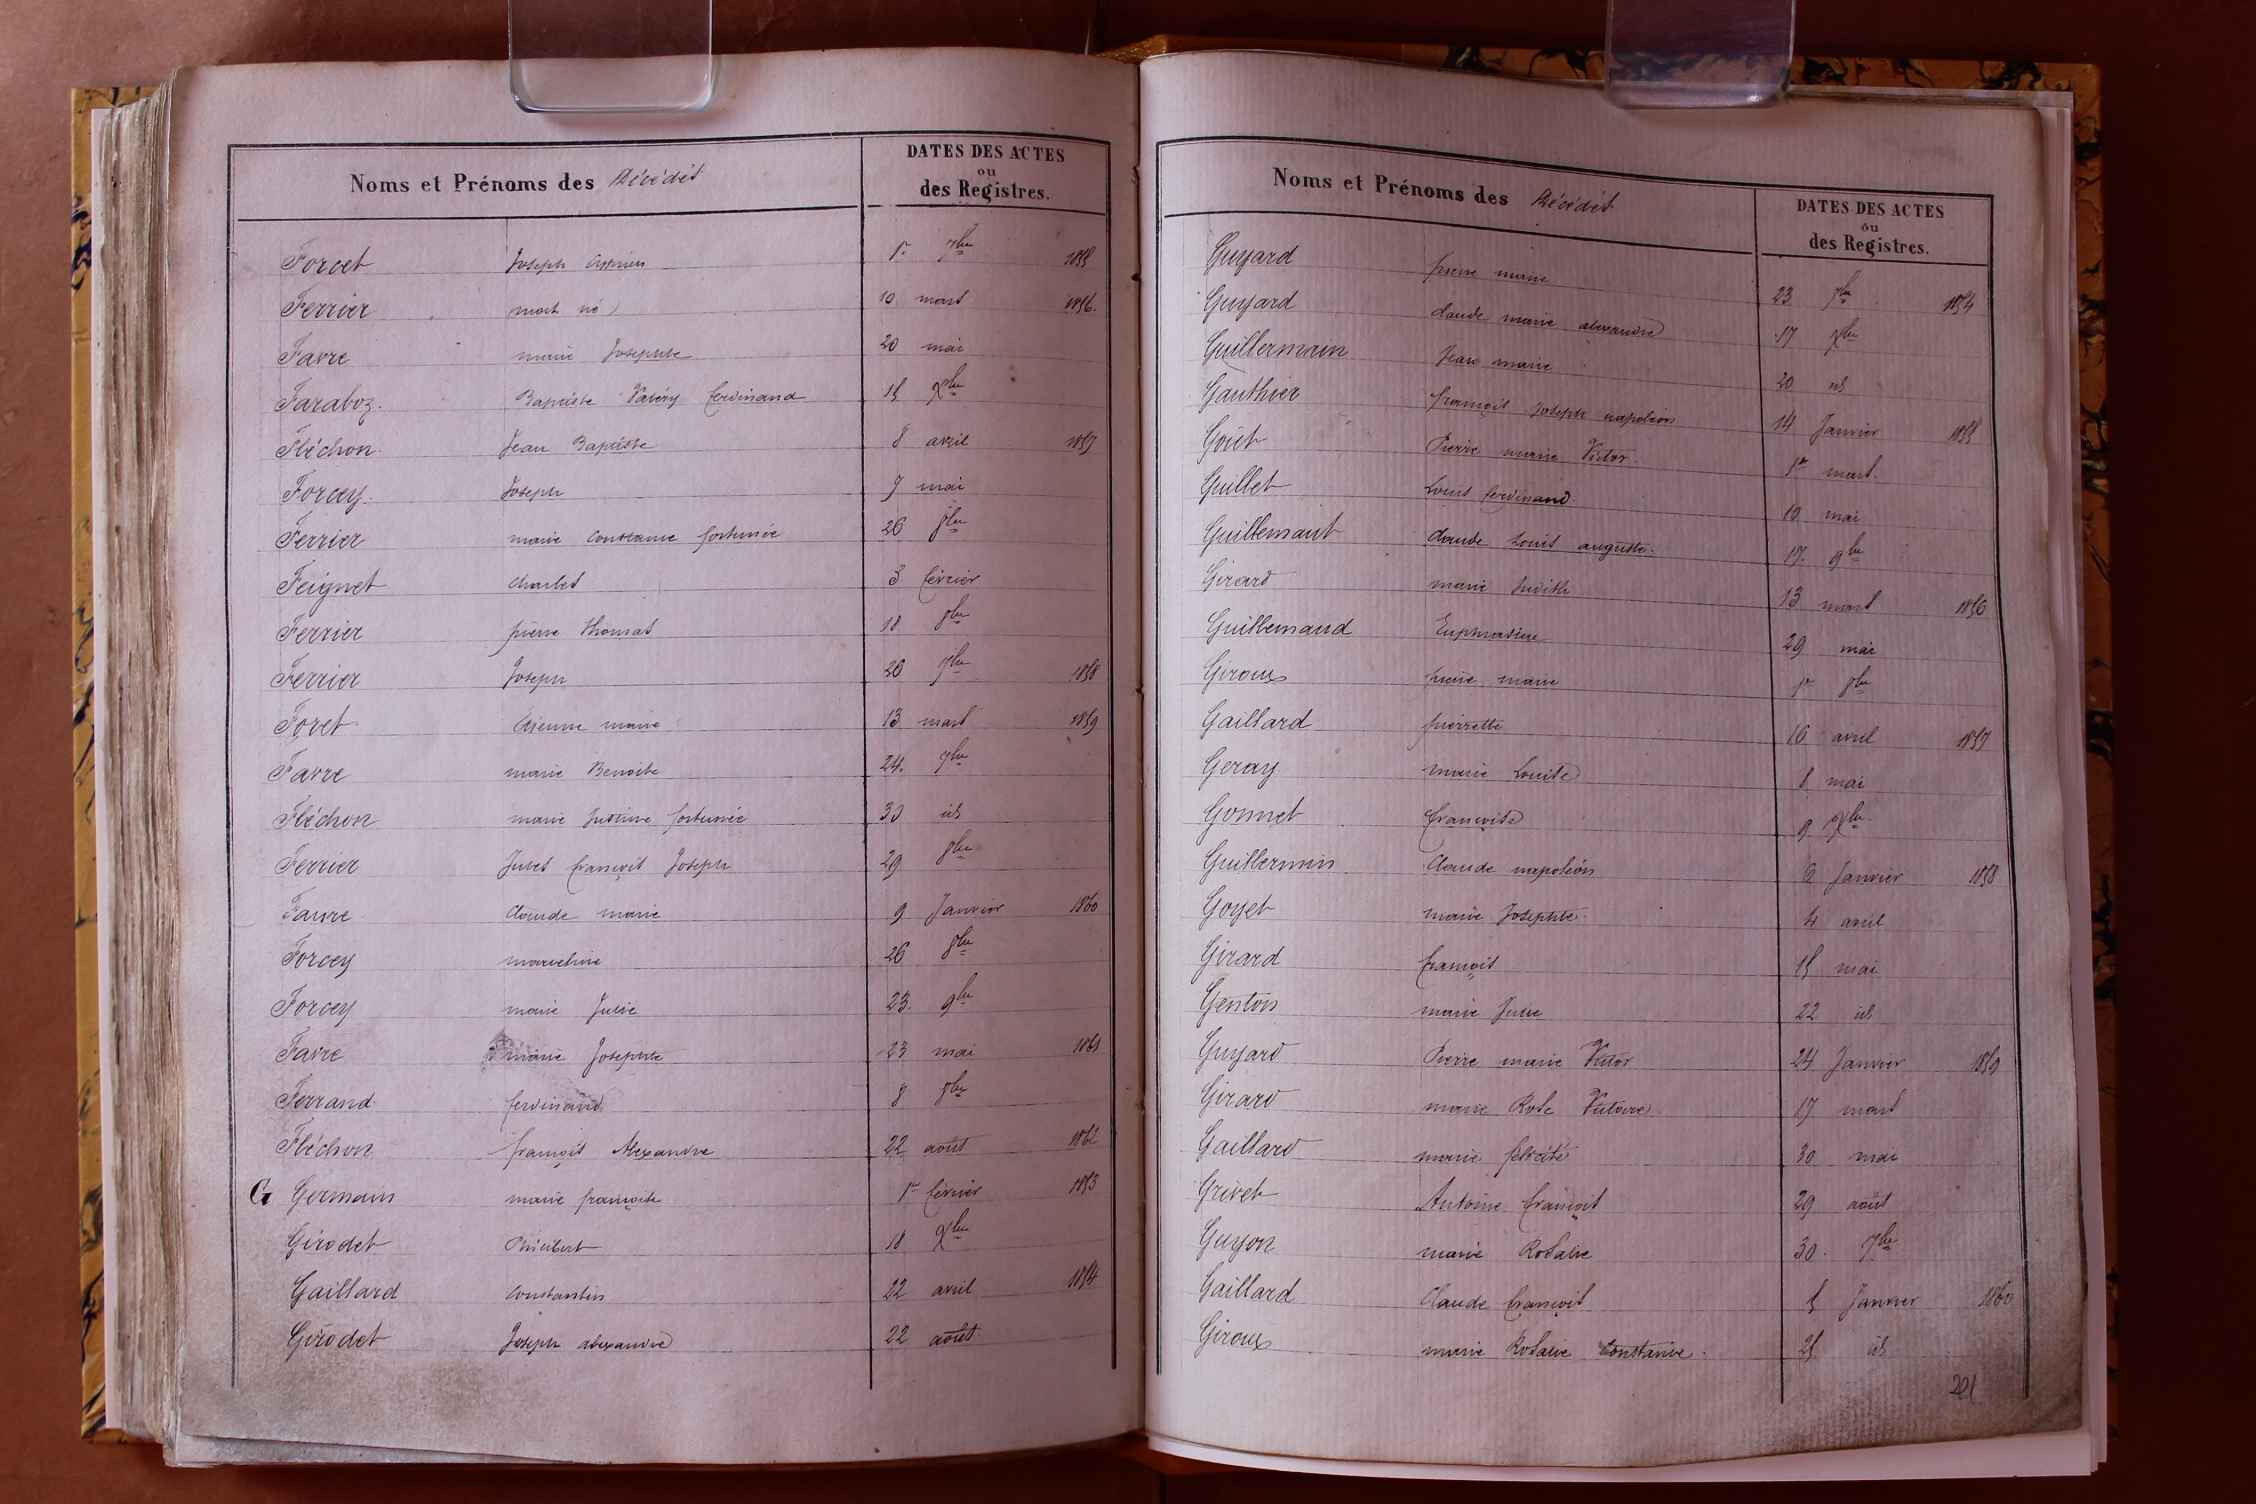 Noms et Prénoms des Décédés DATES DES ACTES
ou
des Registres.
Forcet Joseph Cyprien 1er 7bre 1855
Ferrier mort né 10 mars 1856.
Favre marie Josephte 20 mai
Faraboz. Baptiste Valéry ferdinand 15 Xbre
Fléchon. Jean Baptiste 8 avril 1857
Forcey. Joseph 7 mai
Ferrier marie Constance fortunée 26 8bre
Feignet Charles 3 février
Ferrier pierre Thomas 18 8bre
Ferrier Joseph 20 7bre 1858
Foret Etienne marie 13 mars 1859
Favre marie Benoite 24. 7bre
Fléchon marie Justine fortunée 30 id
Ferrier Jules françois Joseph 29 8bre
Favre Claude marie 9 Janvier 1860
Forcey marceline 26 8bre
Forcey marie Julie 23. 9bre
Favre marie Josephte 23 mai 1861
Ferrand ferdinand 8 8bre
Fléchon françois Alexandre 22 août 1862
G Germain marie françoise 1er février 1853
Girodet Philibert 18 Xbre
Gaillard Constantin 22 avril 1854
Girodet Joseph alexandre 22 août
Noms et Prénoms des Décédés DATES DES ACTES
ou
des Registres.
Guyard pierre marie 23 7bre 1854
Guyard Claude marie alexandre 17 Xbre
Guillermain Jean marie 20 id
Gauthier françois Joseph napoléon 14 Janvier 1855
Goiet Pierre marie Victor. 1er mars.
Guillet Louis ferdinand. 10 mai
Guillemaut Claude Louis auguste. 17. 9bre
Girard marie Judith 13 mars 1856
Guillemaud Euphrasine 29 mai
Giroux pierre marie 1er 8bre
Gaillard pierrette 16 avril 1857
Geray marie Louise 8 mai
Gonnet françoise 9 Xbre.
Guillermin Claude napoléon 2 Janvier 1858
Goyet marie Josephte. 4 avril
Girard françois 15 mai
Genton marie Julie 22 id
Guyard Pierre marie Victor 24 Janvier 1859
Girard marie Rose Victoire 17 mars
Gaillard marie félicité 30 mai
Grivet Antoine françois 29 août
Guyon marie Rosalie 30. 7bre
Gaillard Claude françois 5 Janvier 1860
Giroux marie Rosalie Constance. 25 id
201